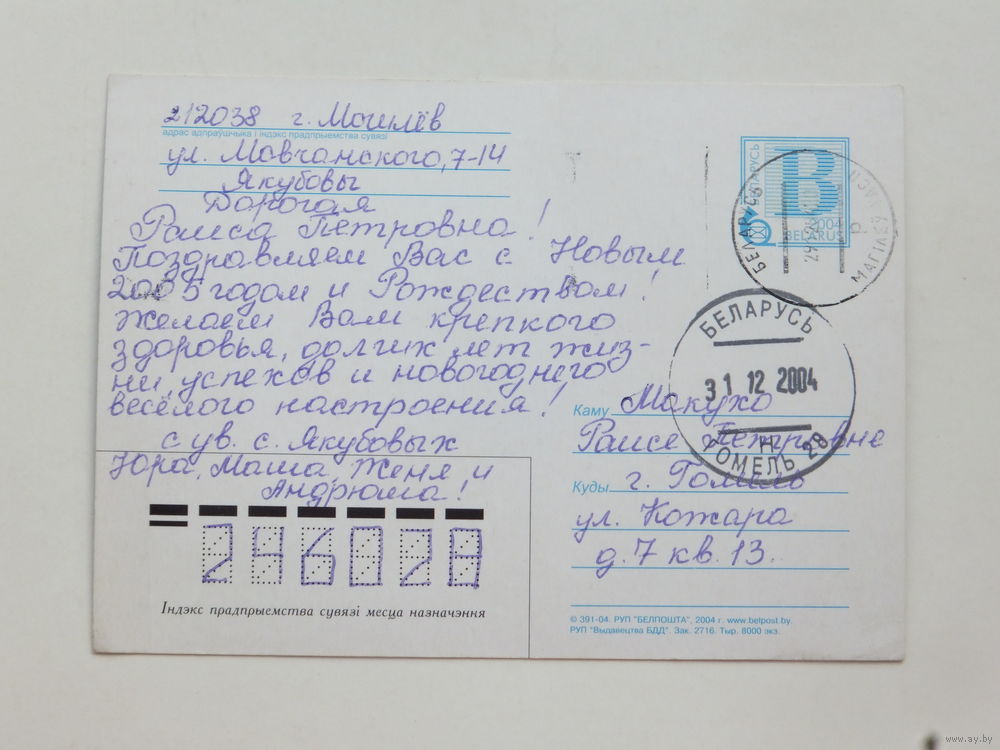 212038 г. Могилёв
адрас адпраўшчыка і індэкс прадпрыемства сувязі
ул. Мовчанского, 7-14
Якубовы
Дорогая
Раиса Петровна!
Поздравляем Вас с Новым
2005 годом и Рождеством!
Желаем Вам крепкого
здоровья, долгих лет жиз-
ни, успехов и новогоднего
весёлого настроения!
с ув. с. Якубовых
Юра, Маша, Женя и
Андрюша!
БЕЛАРУСЬ
B
2004
BELARUS
БЕЛАРУСЬ
МАГІЛЁЎ
БЕЛАРУСЬ
31 12 2004
Н
ГОМЕЛЬ 28
Каму Макухо
Раисе Петровне
Куды г. Гомель
ул. Кожара
д. 7 кв. 13.
246028
Індэкс прадпрыемства сувязі месца назначэння
© 391-04. РУП "БЕЛПОШТА", 2004 г. www.belpost.by.
РУП "Выдавецтва БДД". Зак. 2716. Тыр. 8000 экз.
www.ay.by